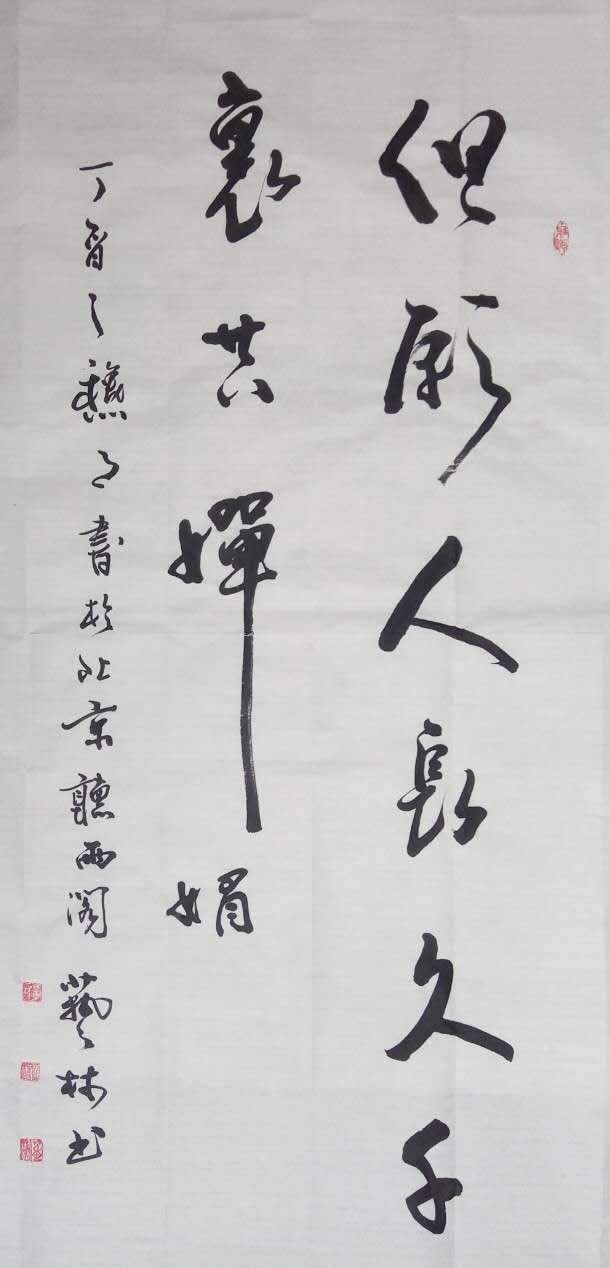 但願人長久千
裏共嬋娟
丁酉之穐月書於北京聽雨閣 藝林书